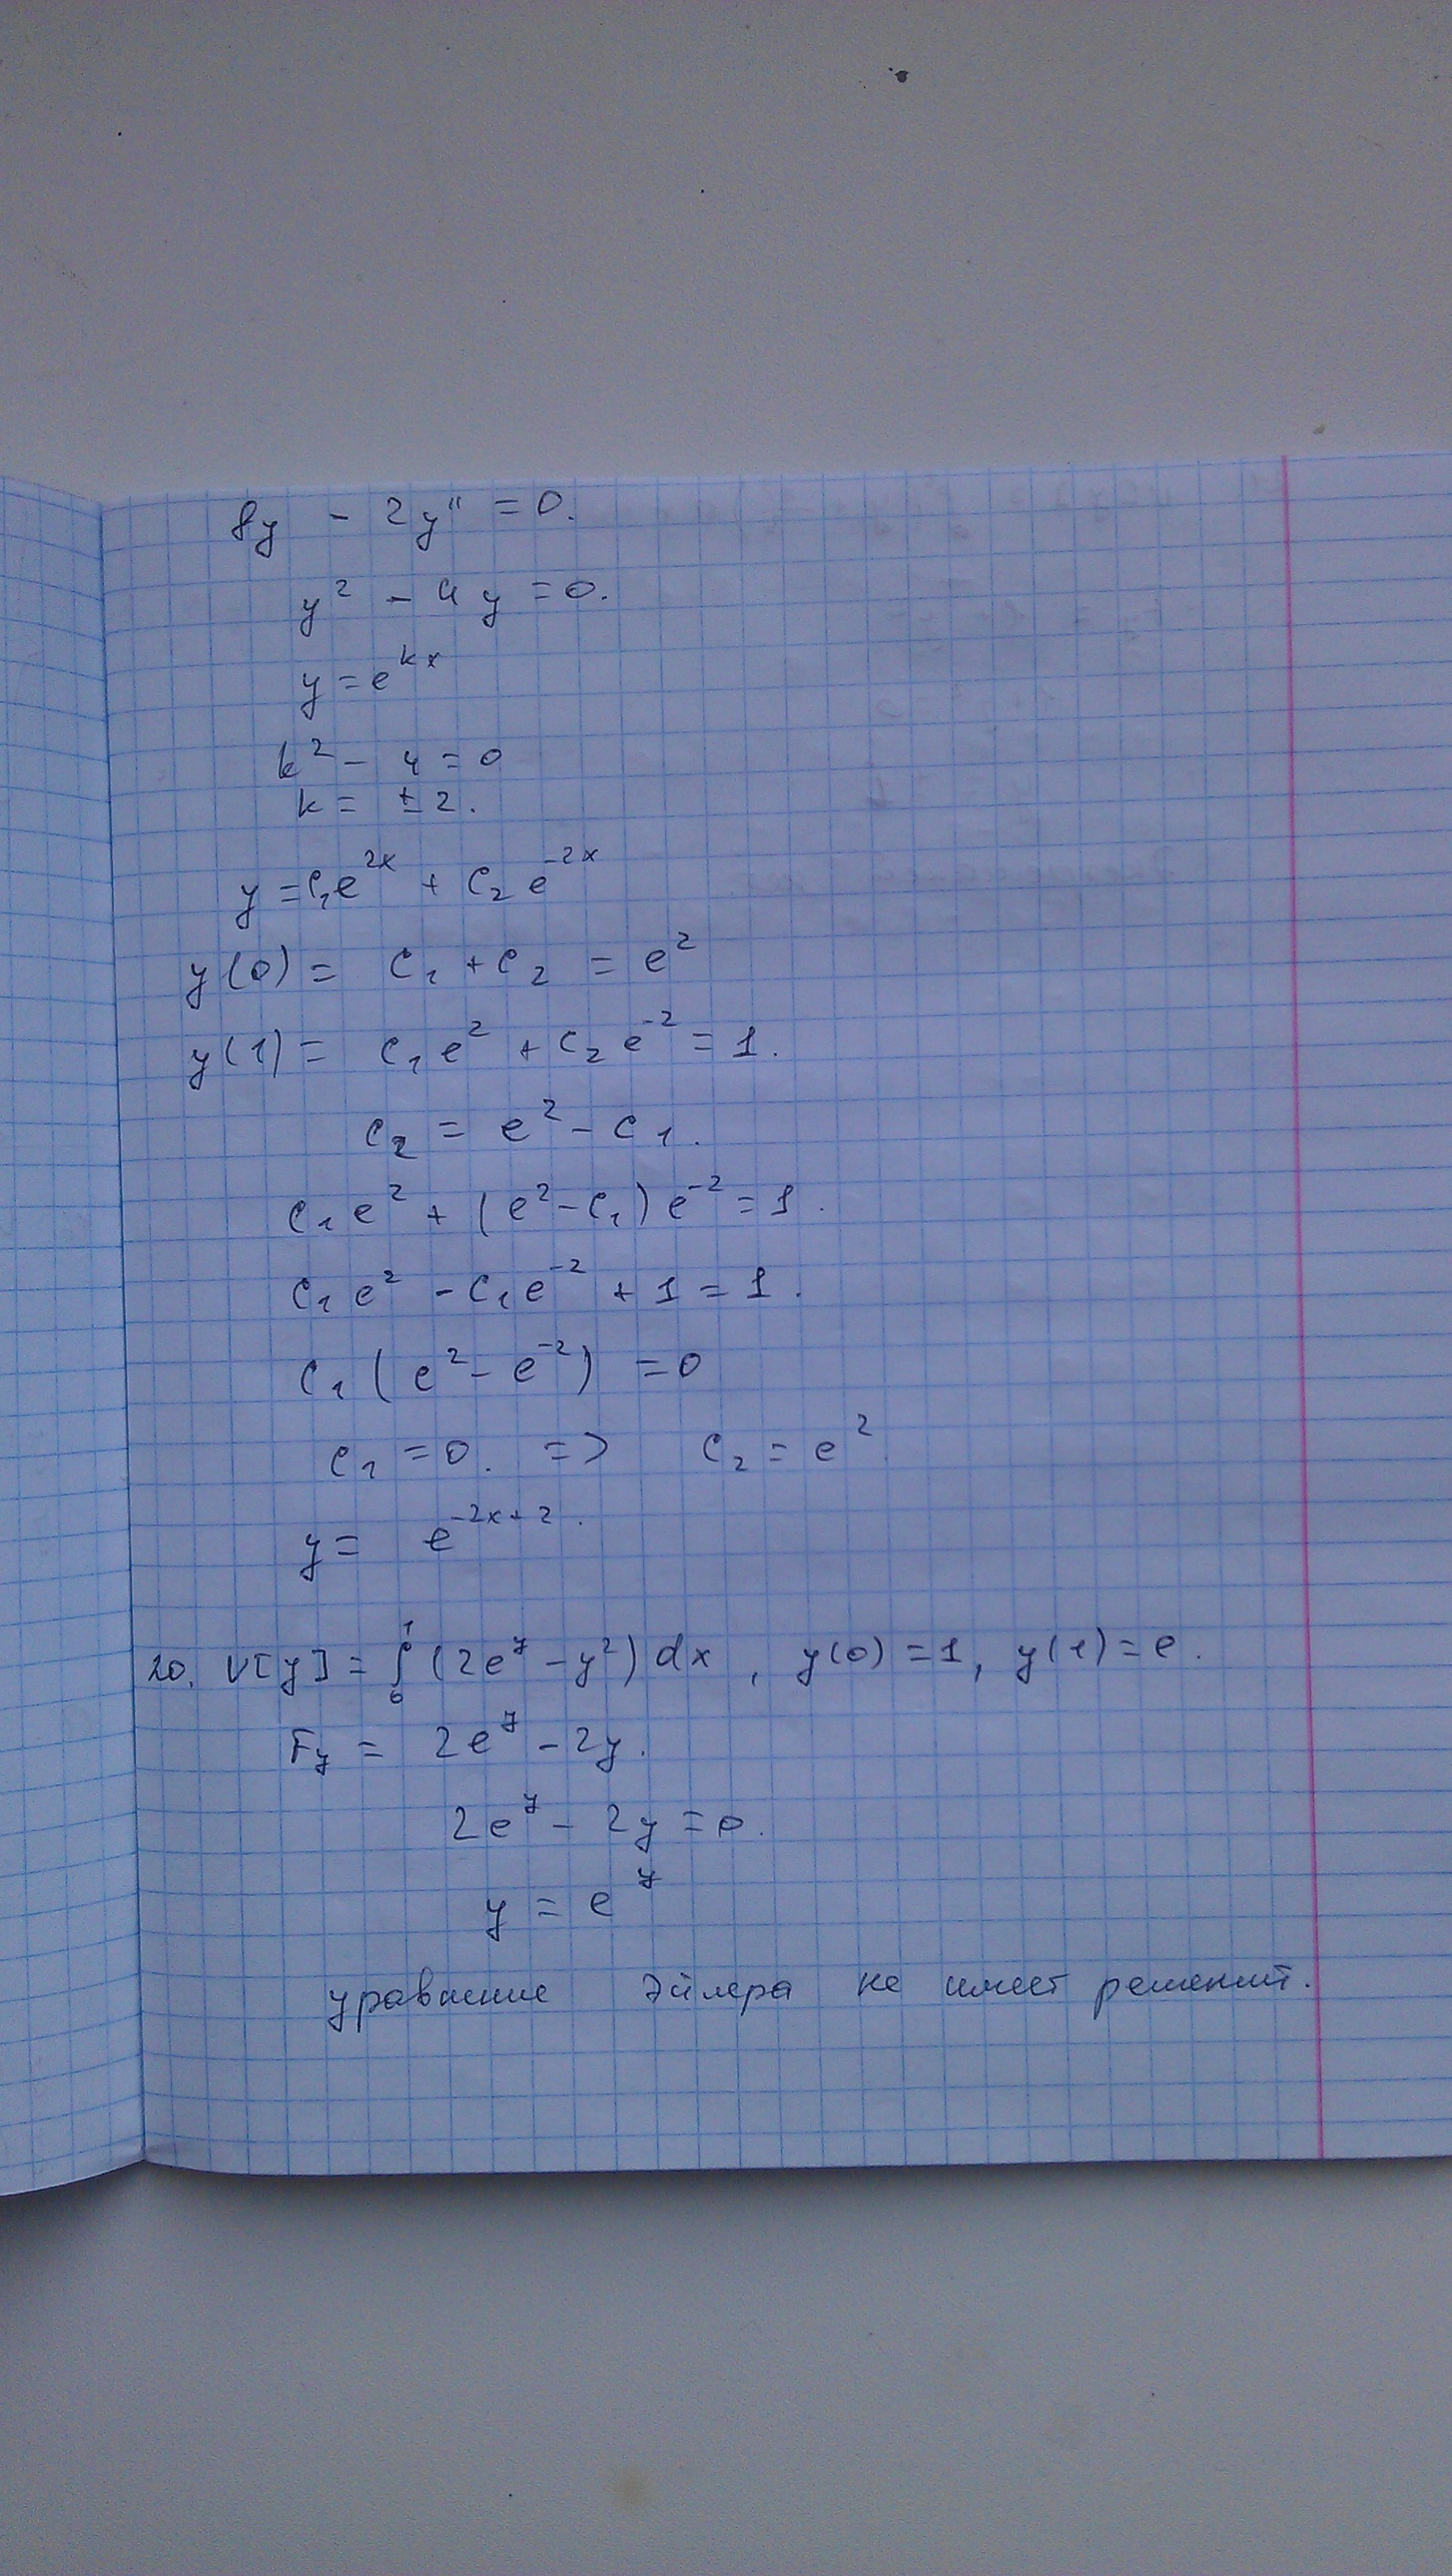 8y - 2y'' = 0.
y² - 4y = 0.
y = e^{kx}
k² - 4 = 0
k = ± 2.
y = C₁e^{2x} + C₂e^{-2x}
y(0) = C₁ + C₂ = e²
y(1) = C₁e² + C₂e^{-2} = 1.
C₂ = e² - C₁.
C₁e² + (e² - C₁)e^{-2} = 1.
C₁e² - C₁e^{-2} + 1 = 1.
C₁(e² - e^{-2}) = 0
C₁ = 0. => C₂ = e².
y = e^{-2x+2}.
20. V[y] = ∫₀¹ (2e^y - y²) dx, y(0) = 1, y(1) = e.
F_y = 2e^y - 2y.
2e^y - 2y = 0.
y = e^y
уравнение Эйлера не имеет решений.